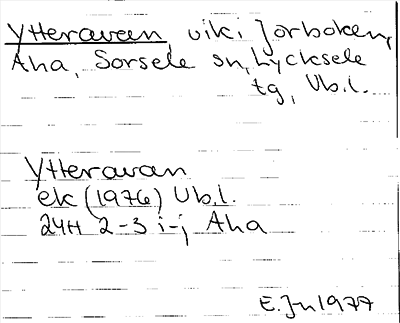 Ytteravan, vik i Jorboken,
Aha, Sorsele sn, Lycksele
tg, Vb.l.
Ytteravan
ek (1976) Vb.l.
24H 2-3 i-j Aha
E. Jn 1977